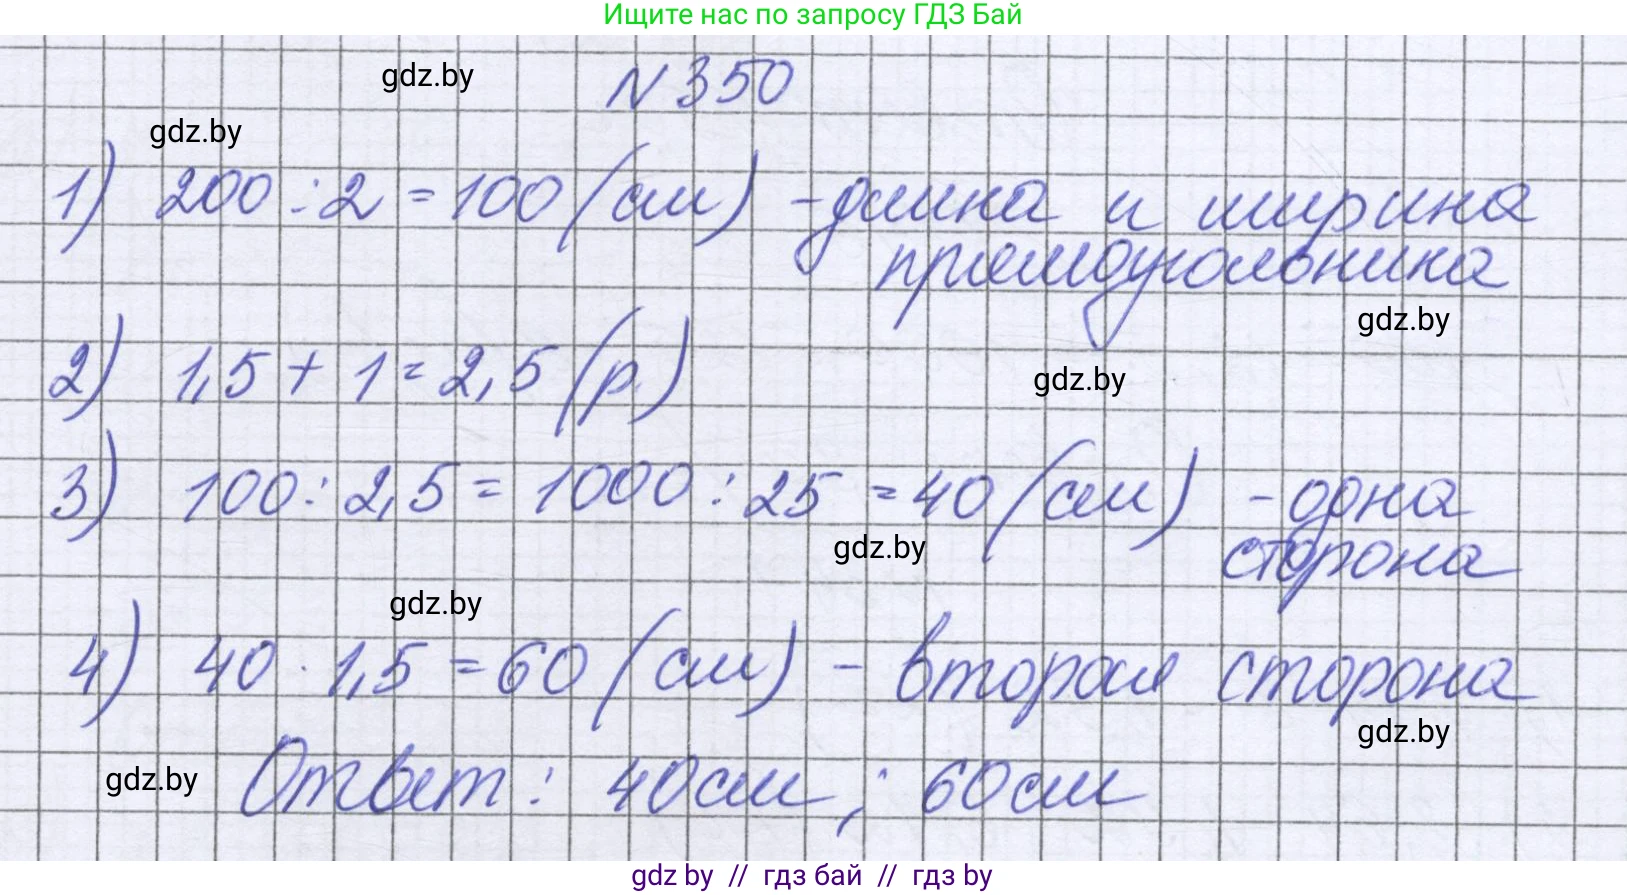 Ищите нас по запросу ГДЗ Бай
gdz.by
N 350
gdz.by
1) 200 : 2 = 100 (см) - длина и ширина
прямоугольника
gdz.by
2) 1,5 + 1 = 2,5 (р.)
gdz.by
3) 100 : 2,5 = 1000 : 25 = 40 (см) - одна
gdz.by
сторона
gdz.by
4) 40 · 1,5 = 60 (см) - вторая сторона
gdz.by
gdz.by
Ответ: 40см ; 60см
gdz by // гдз бай // гдз by